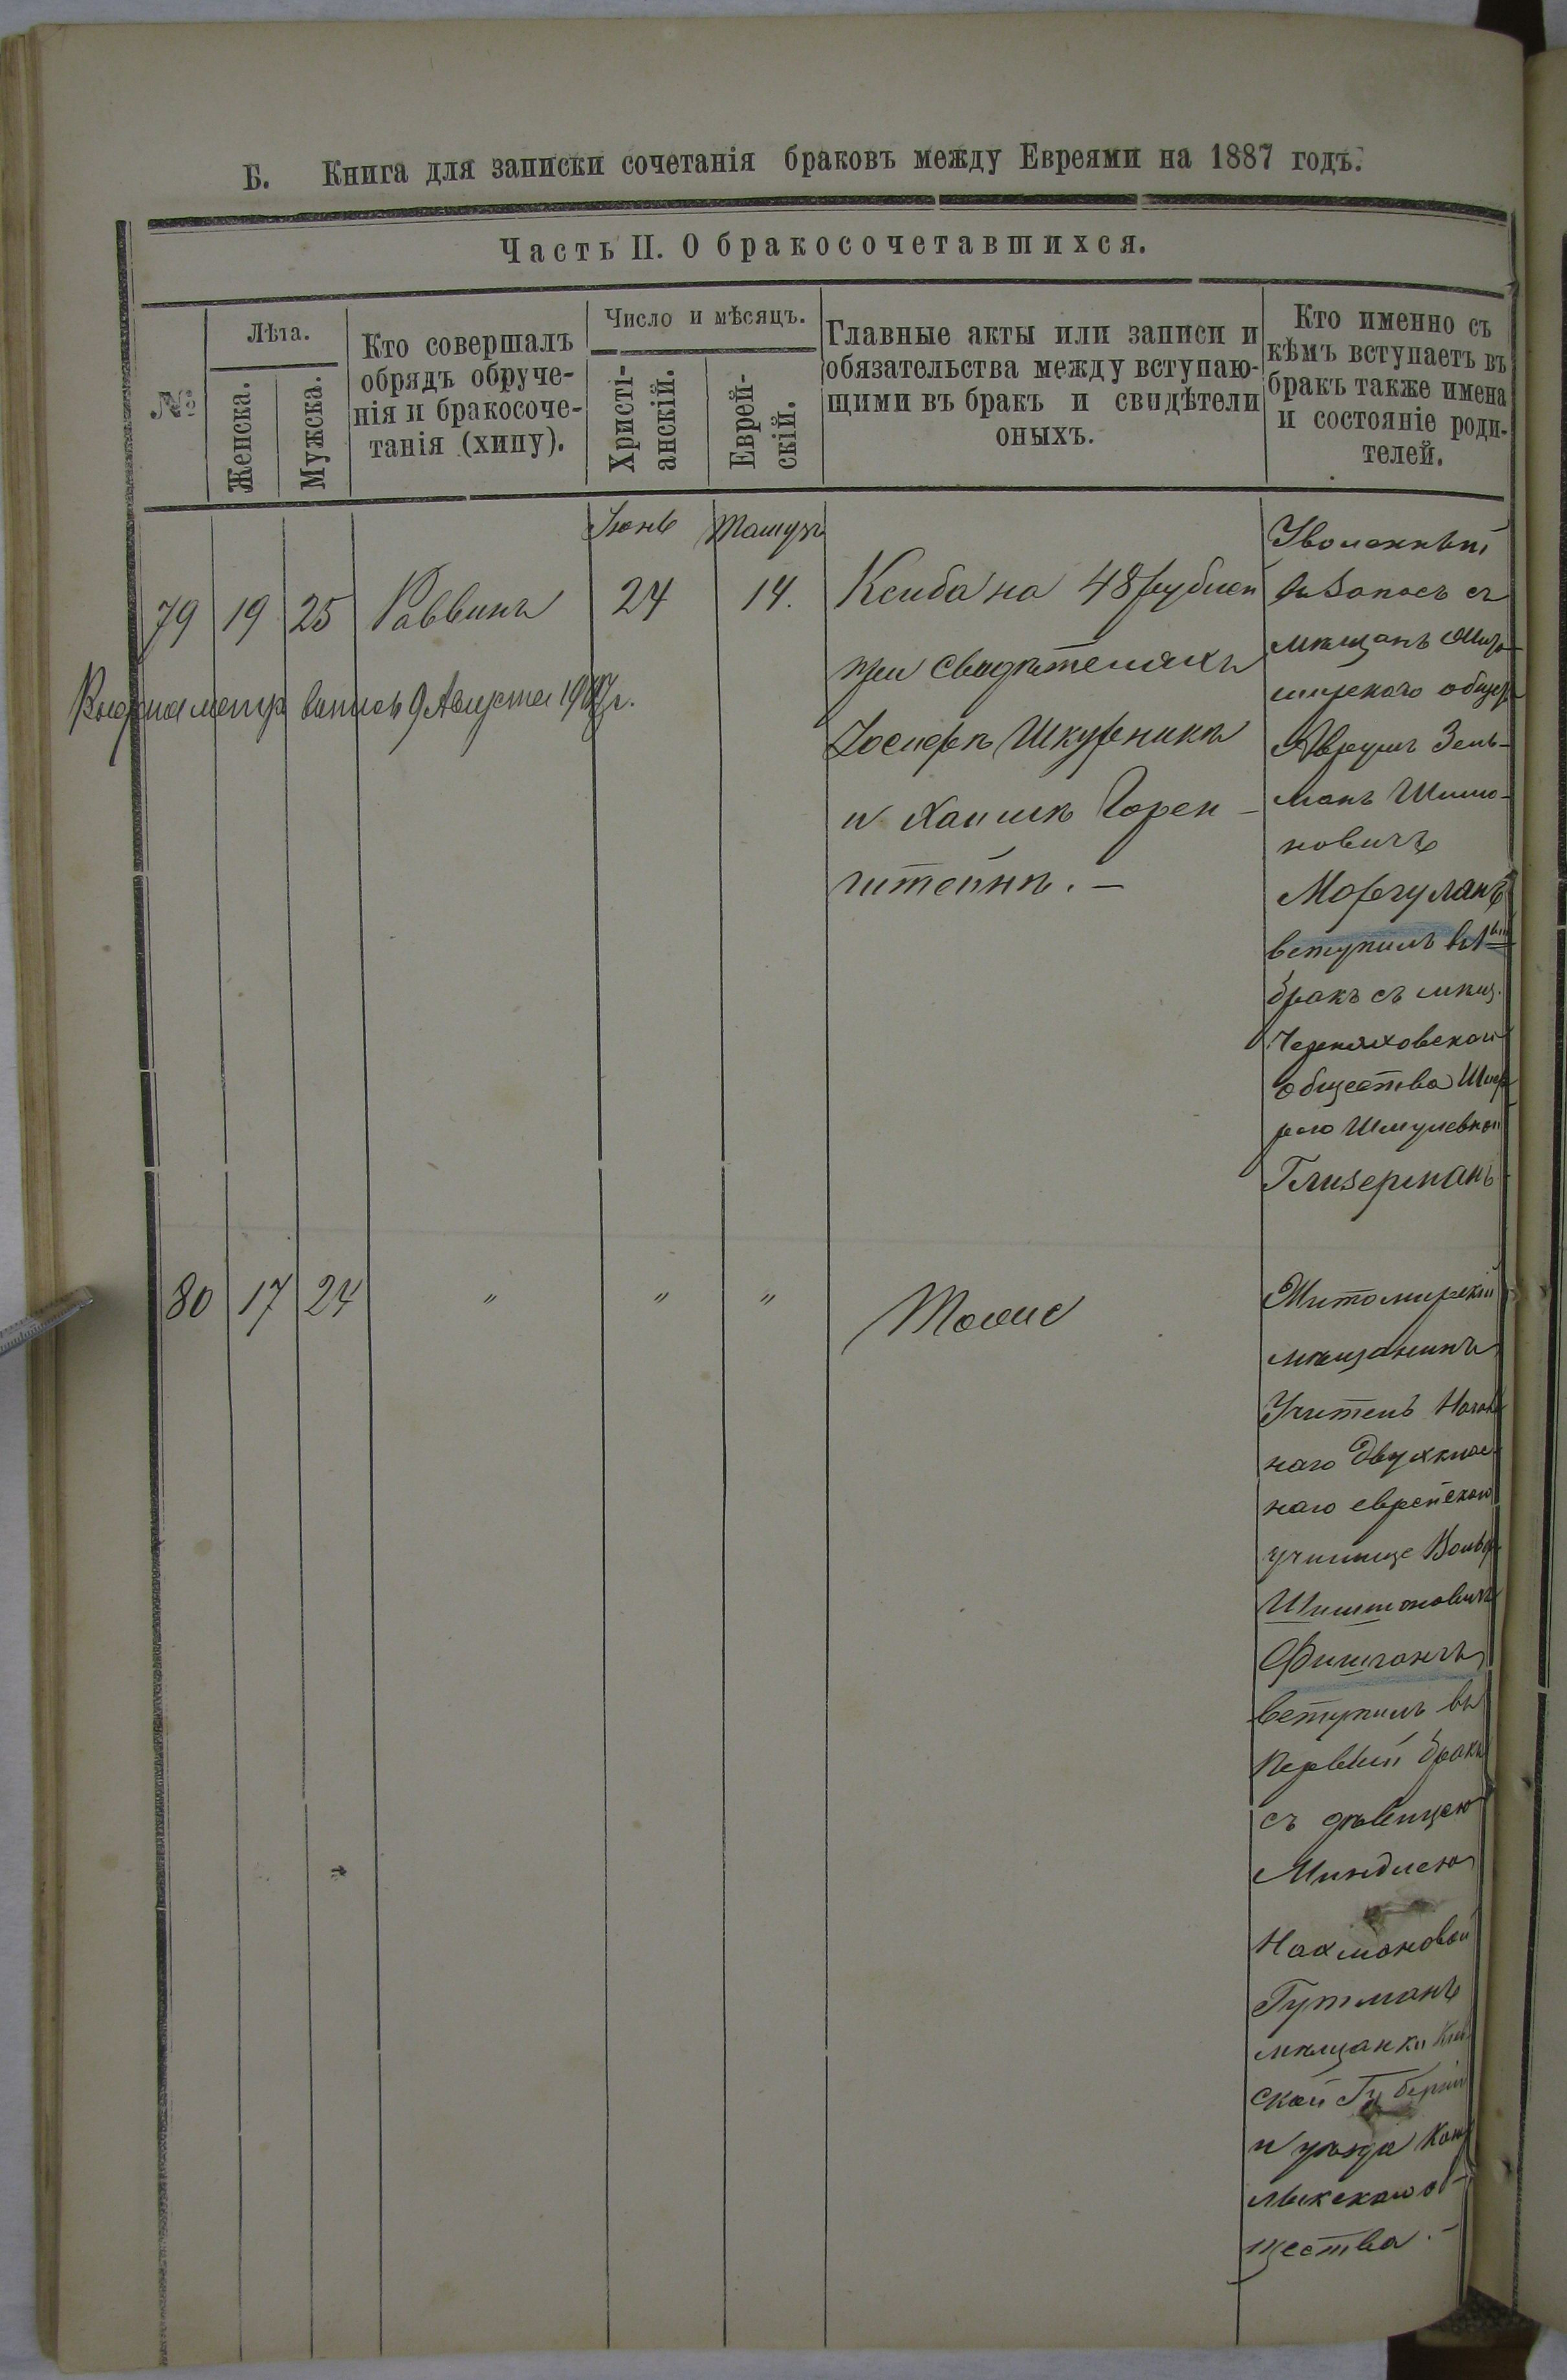 Б. Книга для записки сочетанія браковъ между Евреями на 1887 годъ.
Часть II. О бракосочетавшихся.
№
Лѣта.
Женска.
Мужска.
Кто совершалъ
обрядъ обруче-
нія и бракосоче-
танія (хипу).
Число и мѣсяцъ.
Христі-
анскій.
Еврей-
скій.
Главные акты или записи и
обязательства между вступаю-
щими въ бракъ и свидѣтели
оныхъ.
Кто именно съ
кѣмъ вступаетъ въ
бракъ также имена
и состояніе роди-
телей.
Іюнь
79 19 25 Раввинъ 24 14.
метр. 9 Августа
Ксиба на 48 рублей
при свидѣтеляхъ
Іосифѣ Шкурникѣ
и Хаимѣ Горен-
штейнѣ. —
Уволенный
въ Запасъ
мѣщанъ
Аврумъ Зель-
манъ Шимо-
новичъ
Моргуланъ
вступилъ въ 1ый
бракъ съ мѣщ.
Черняховскаго
общества
Шмулевной
Глизерманъ
80 17 24 " " " Тоже
Житомирскій
мѣщанинъ
Учитель
наго двухклас-
наго еврейскаго
училища Вольф
Шимоновичъ
Фишганъ
вступилъ въ
первый бракъ
съ дѣвицею
Миндлею
Нахмановой
Гутманъ
мѣщанки
ской Губерніи
и уѣзда
об-
щества. —